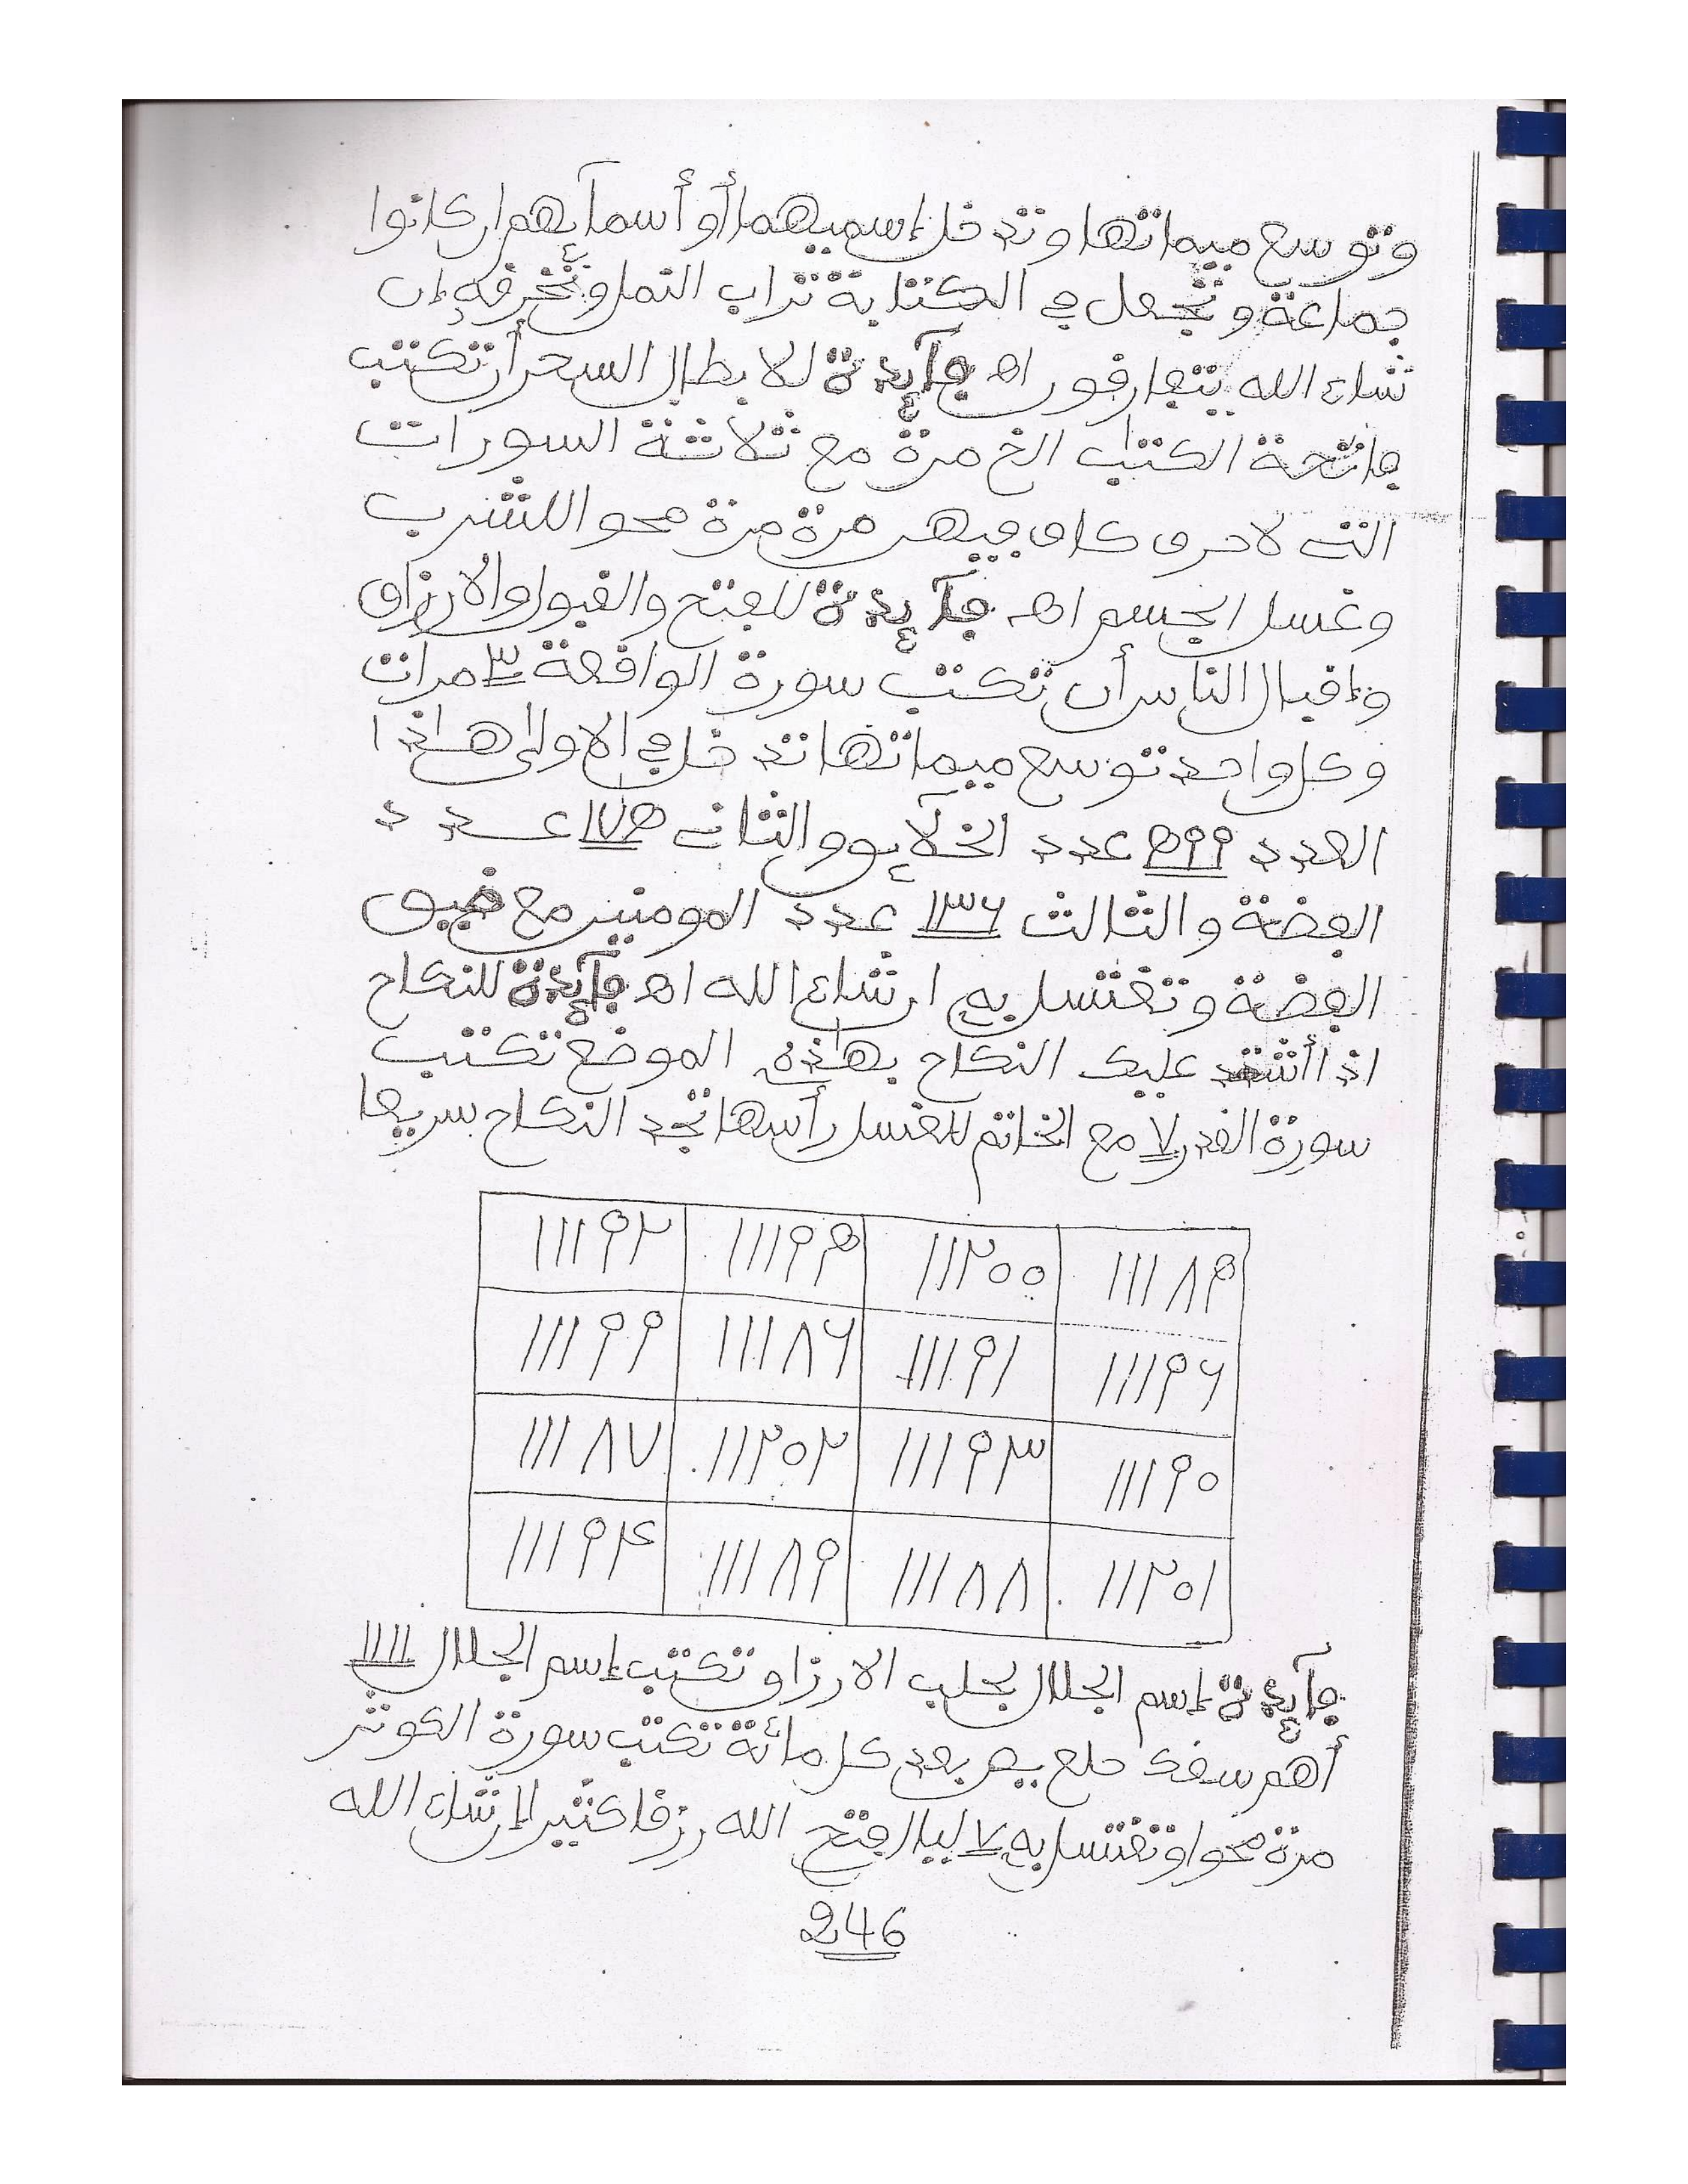 وتوسع ميماتها وتدخل إسميهما أو أسمآئهم ان كانوا
جماعة وتجعل في الكتابة تراب النمل وتحرقه إن
شاء الله يتفارقون اهـ فآئدة لابطال السحر أن تكتب
فاتحة الكتب الخ مرة مع ثلاثة السورات
التي لاحرف كاف فيهن مرة مرة محو اللشرب
وغسل الجسم اهـ فآئدة للفتح والقبول والارزاق
وإقبال الناس أن تكتب سورة الواقعة ٣ مرات
وكل واحد توسع ميماتها تدخل في الاولى هاذا
العدد ٥٩٩ عدد الخلآئق والثاني ١٧٥ عدد
الفضة والثالث ١٣٦ عدد المومنين مع ضيق
الفضة وتغتسل به ان شاء الله اهـ فآئدة للنكاح
اذا أشتد عليك النكاح بهاذه الموضع تكتب
سورة القدر ٧ مع الخاتم للغسل رأسها تجد النكاح سريعا
١١١٨٥ ١١٢٠٠ ١١١٩٥ ١١١٩٢
١١١٩٦ ١١١٩١ ١١١٨٦ ١١١٩٩
١١١٩٠ ١١١٩٣ ١١٢٠٢ ١١١٨٧
١١٢٠١ ١١١٨٨ ١١١٨٩ ١١١٩٤
فآئدة إسم الجلال لجلب الارزاق تكتب إسم الجلال ١١١١
أهم سقك حلع يص بعد كل مائة تكتب سورة الكوثر
مرة محوا وتغتسل به ٧ ليال يفتح الله رزقا كثيرا إن شاء الله
246